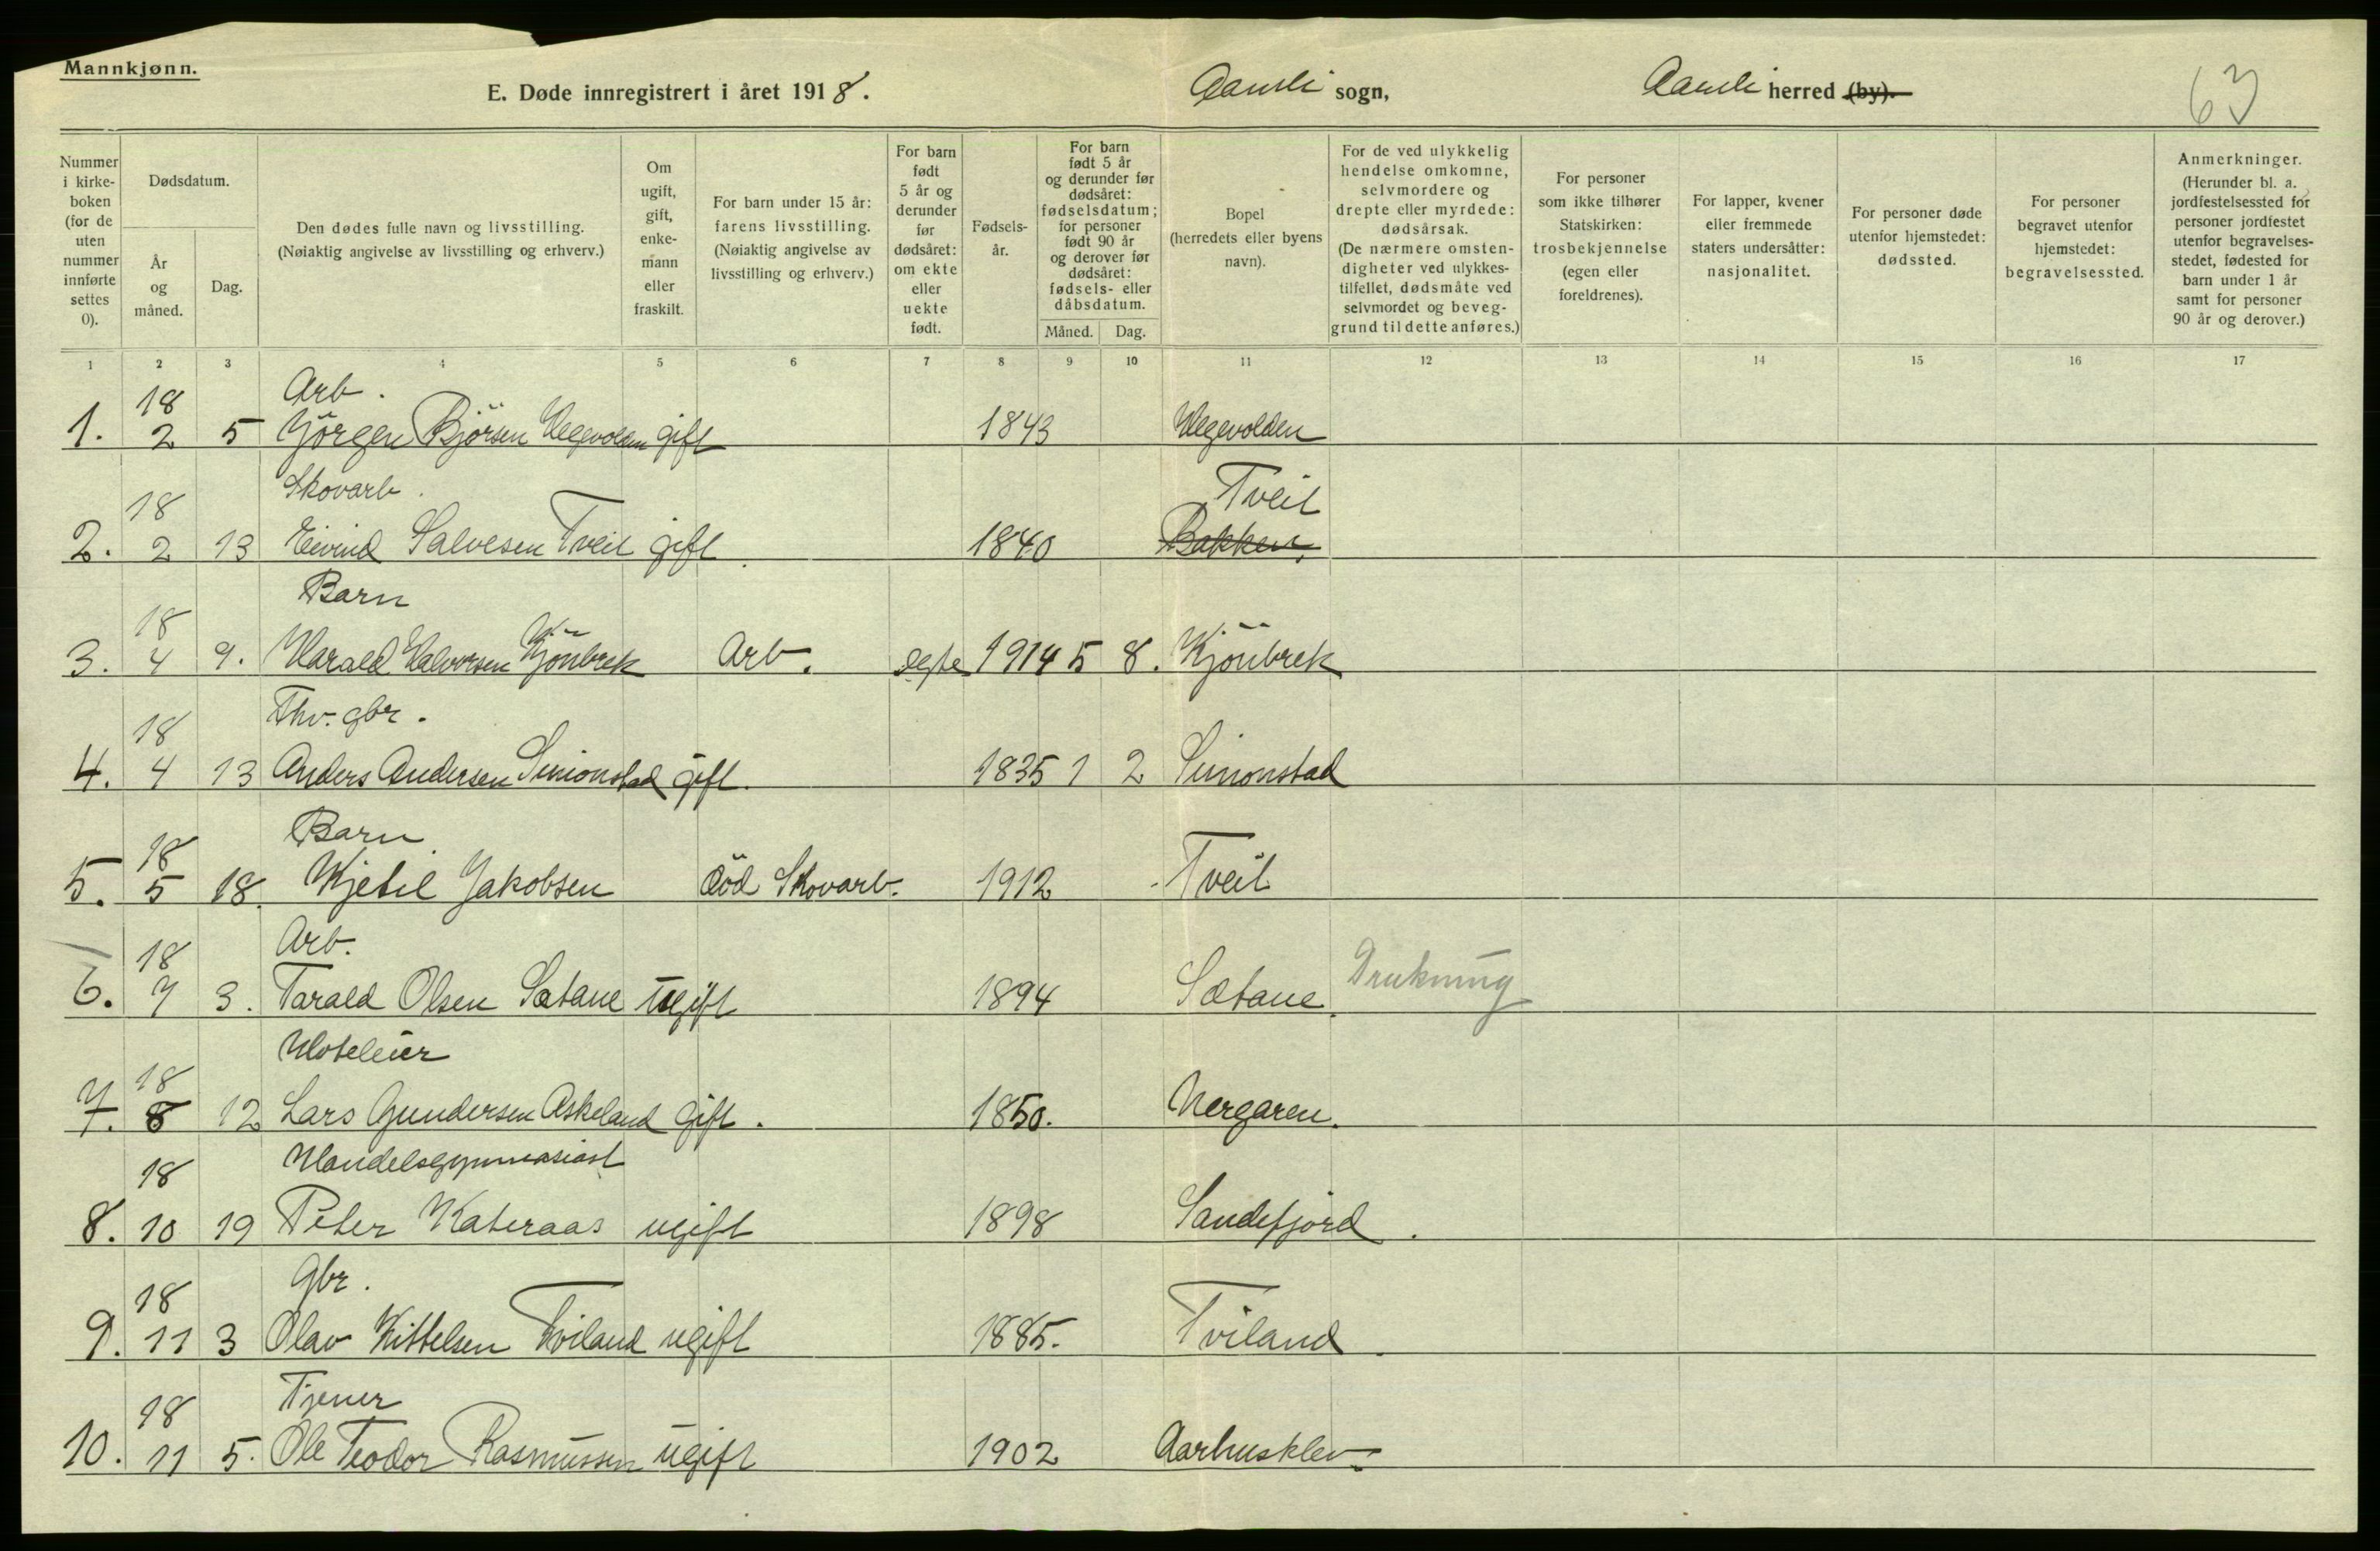 Mannkjønn.
E. Døde innregistrert i året 1918. Aamli sogn, Aamli herred (by). 63
Nummer i kirke-boken (for de uten nummer innførte settes 0).
Dødsdatum.
År og måned.
Dag.
Den dødes fulle navn og livsstilling.
(Nøiaktig angivelse av livsstilling og erhverv.)
Om ugift, gift, enke-mann eller fraskilt.
For barn under 15 år: farens livsstilling.
(Nøiaktig angivelse av livsstilling og erhverv.)
For barn født 5 år og derunder før dødsåret: om ekte eller uekte født.
Fødsels-år.
For barn født 5 år og derunder før dødsåret: fødselsdatum; for personer født 90 år og derover før dødsåret: fødsels- eller dåbsdatum.
Måned. Dag.
Bopel (herredets eller byens navn).
For de ved ulykkelig hendelse omkomne, selvmordere og drepte eller myrdede: dødsårsak.
(De nærmere omsten-digheter ved ulykkes-tilfellet, dødsmåte ved selvmordet og beveg-grund til dette anføres.)
For personer som ikke tilhører Statskirken: trosbekjennelse (egen eller foreldrenes).
For lapper, kvener eller fremmede staters undersåtter: nasjonalitet.
For personer døde utenfor hjemstedet: dødssted.
For personer begravet utenfor hjemstedet: begravelsessted.
Anmerkninger.
(Herunder bl. a. jordfestelsessted for personer jordfestet utenfor begravelses-stedet, fødested for barn under 1 år samt for personer 90 år og derover.)
1 2 3 4 5 6 7 8 9 10 11 12 13 14 15 16 17
18 Arb.
1. 2 5 Jörgen Björsen Hegevolden gift 1843 Hegevolden
18 Skovarb. Tveit
2. 2 13 Eivind Salvesen Tveit gift 1840 Bakken
18 Barn
3. 4 9. Harald Halvorsen Kjönbrek Arb. egte 1914 5 8. Kjönbrek
18 Fhv. gbr.
4. 4 13 Anders Andersen Simonstad gift. 1835 1 2 Simonstad
18 Barn
5. 5 18. Kjetil Jakobsen död Skovarb. 1912 Tveit
18 Arb.
6. 7 3. Tarald Olsen Sætane ugift 1894 Sætane Drukning
18 Hoteleier
7. 8 12 Lars Gundersen Askeland gift. 1850. Nergaren.
18 Handelsgymnasiast
8. 10 19 Peter Kateraas ugift 1898 Sandefjord.
18 Gbr.
9. 11 3 Olav Kittelsen Tviland ugift 1885. Tviland.
18 Tjener
10. 11 5. Ole Teodor Rasmussen ugift 1902 Aarhusklev